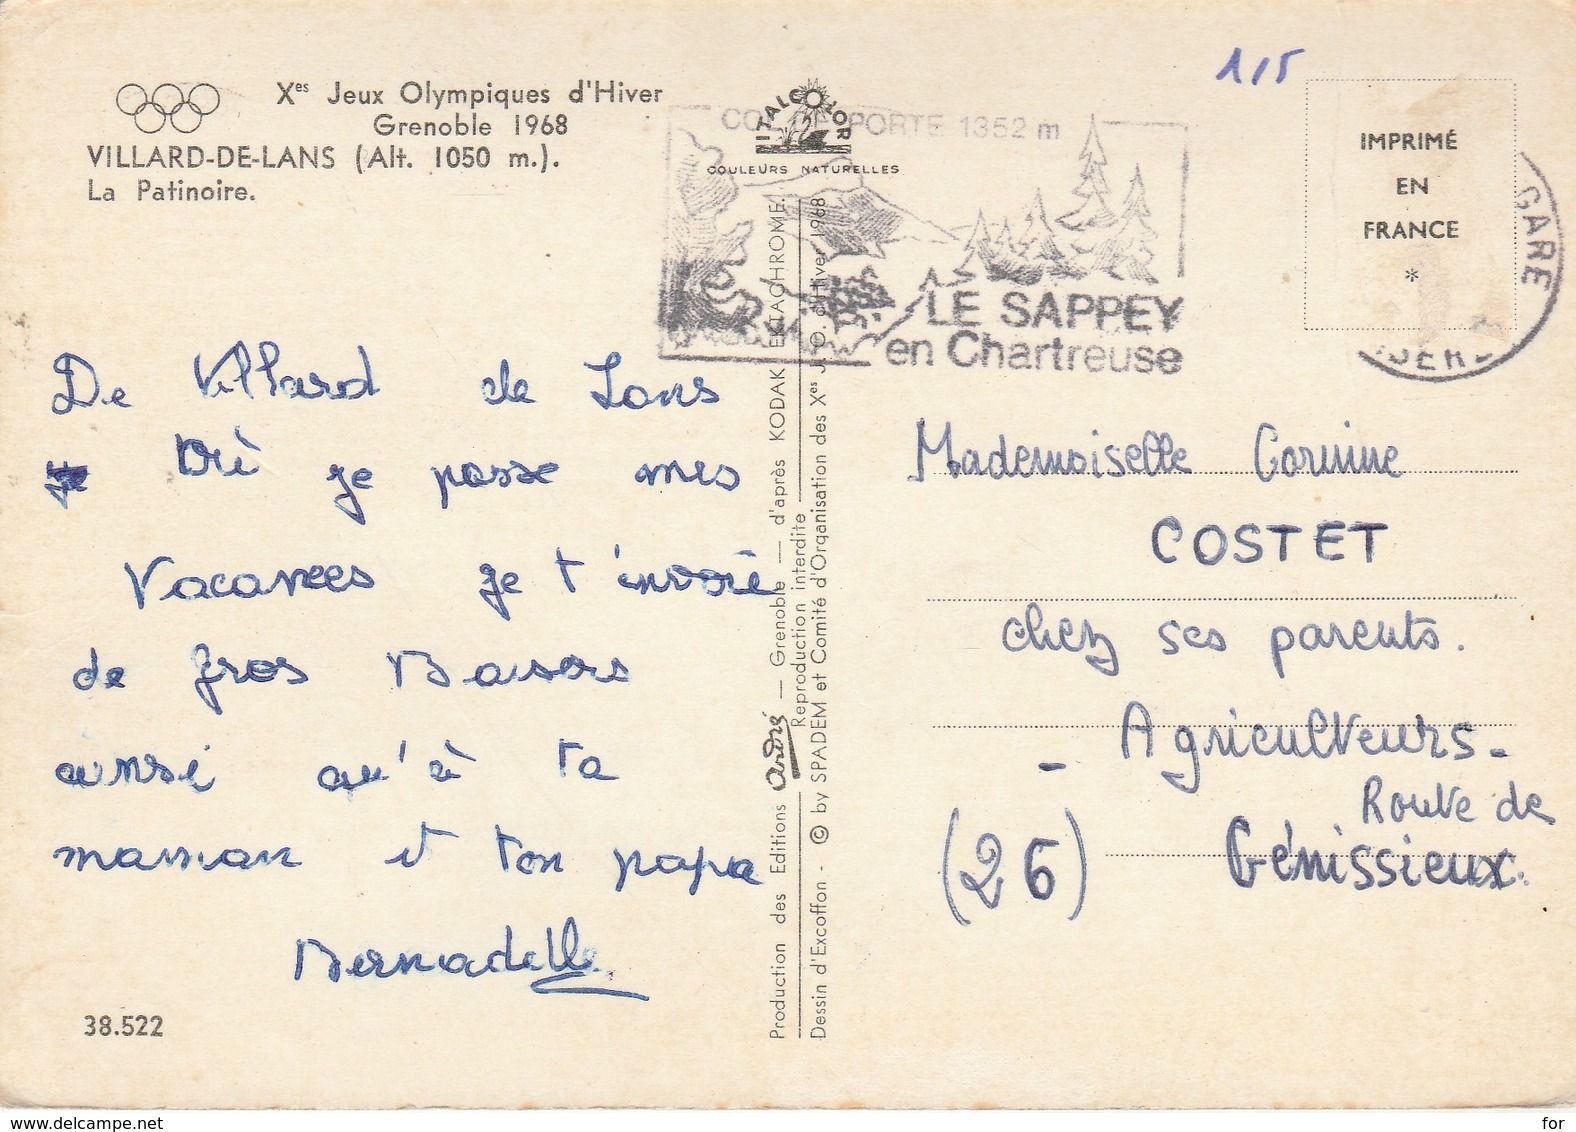 Xes Jeux Olympiques d'Hiver
Grenoble 1968
VILLARD-DE-LANS (Alt. 1050 m.).
La Patinoire.
De Villard de Lans
je Où je passe mes
Vacances je t'envoie
de gros Baisers
ainsi qu'à ta
maman et ton papa
Bernadette
38.522
ITALCOLOR
COULEURS NATURELLES
PORTE 1352 m
LE SAPPEY
en Chartreuse
Production des Editions André — Grenoble — d'après KODAK EKTACHROME.
Reproduction interdite
Dessin d'Excoffon - © by SPADEM et Comité d'Organisation des Xes J. O. d'Hiver 1968
1/5
IMPRIMÉ
EN
FRANCE
*
GARE
ISERE
Mademoiselle Corinne
COSTET
chez ses parents.
- Agriculteurs -
Route de
(26) Génissieux.
delcampe.net
for